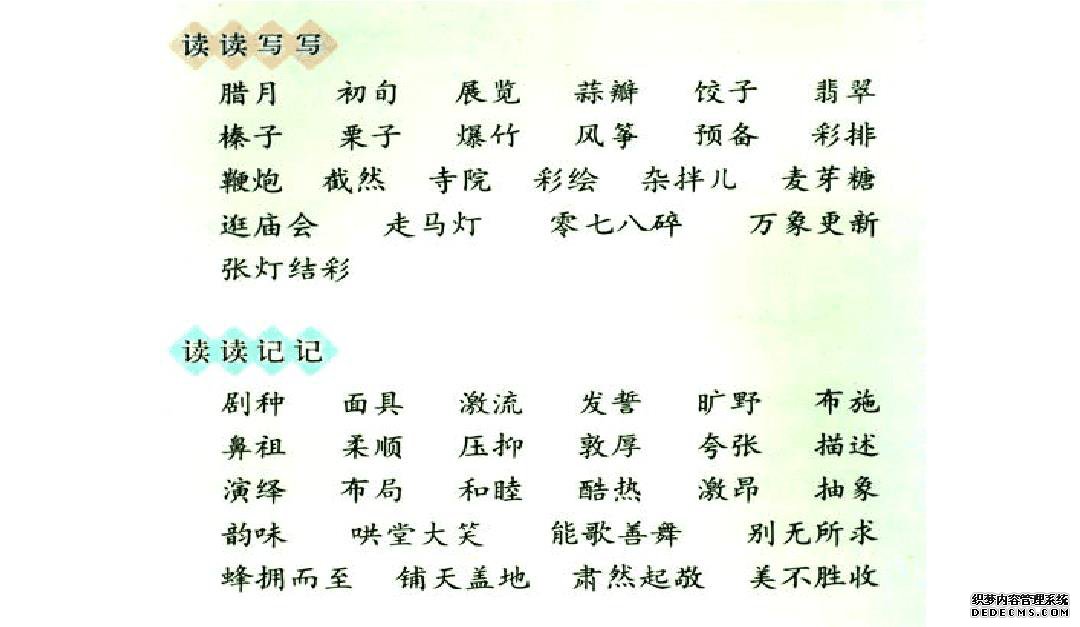 读读写写
腊月 初旬 展览 蒜瓣 饺子 翡翠
榛子 栗子 爆竹 风筝 预备 彩排
鞭炮 截然 寺院 彩绘 杂拌儿 麦芽糖
逛庙会 走马灯 零七八碎 万象更新
张灯结彩
读读记记
剧种 面具 激流 发誓 旷野 布施
鼻祖 柔顺 压抑 敦厚 夸张 描述
演绎 布局 和睦 酷热 激昂 抽象
韵味 哄堂大笑 能歌善舞 别无所求
蜂拥而至 铺天盖地 肃然起敬 美不胜收
织梦内容管理系统
DEDECMS.COM